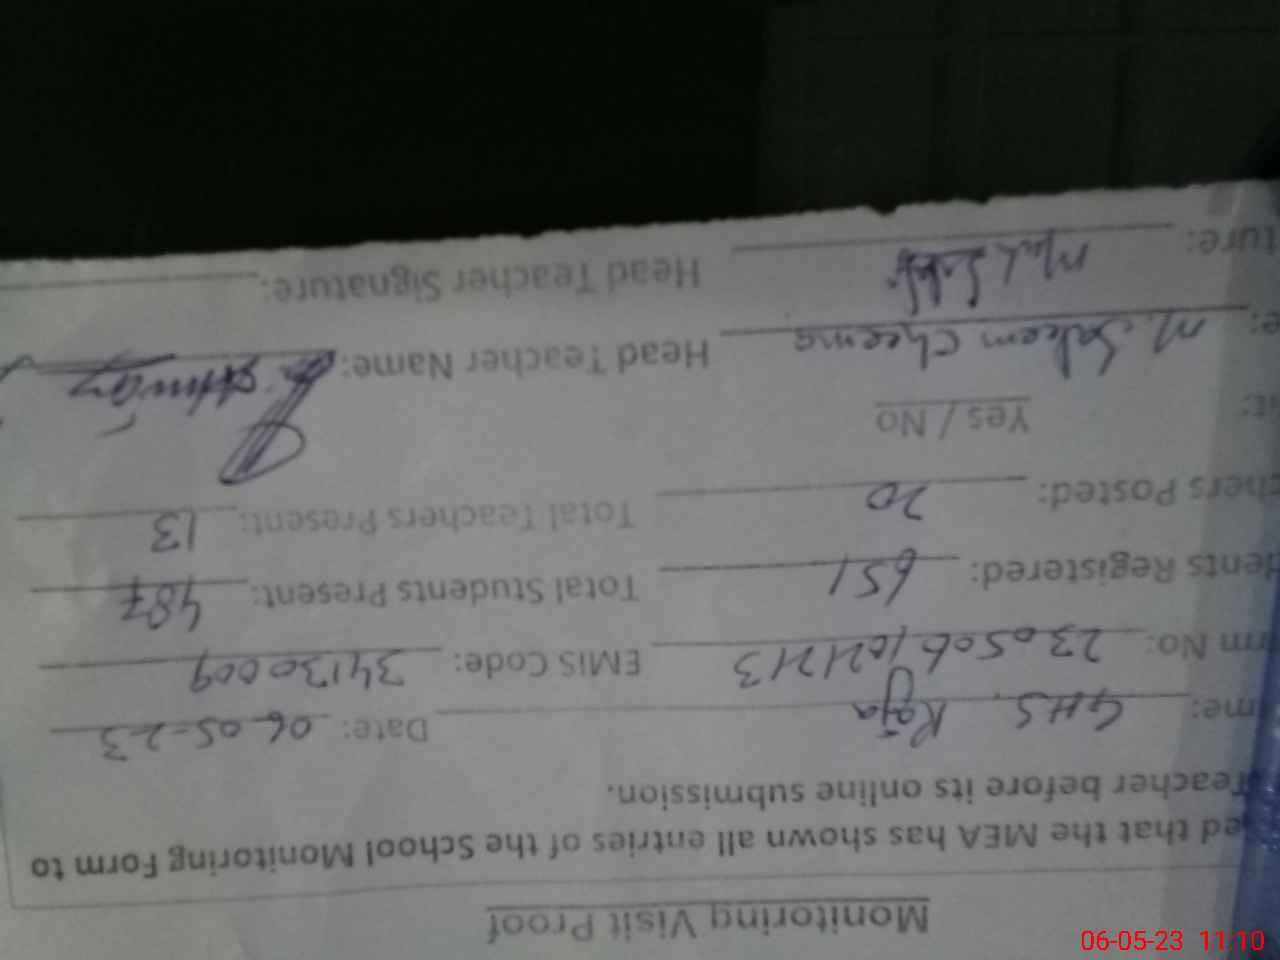 Monitoring Visit Proof
ed that the MEA has shown all entries of the School Monitoring Form to
Teacher before its online submission.
me: G.H.S. Raja Date: 06-05-23
rm No: EMIS Code: 34130009
dents Registered: 651 Total Students Present: 487
chers Posted: 20 Total Teachers Present: 13
it: Yes / No
e: M. Saleem Cheema Head Teacher Name:
ture: Head Teacher Signature:
06-05-23 11:10